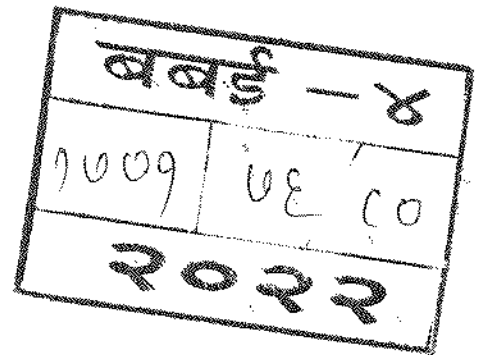 बबई - ४
१७०१ ७६ ८०
२०२२